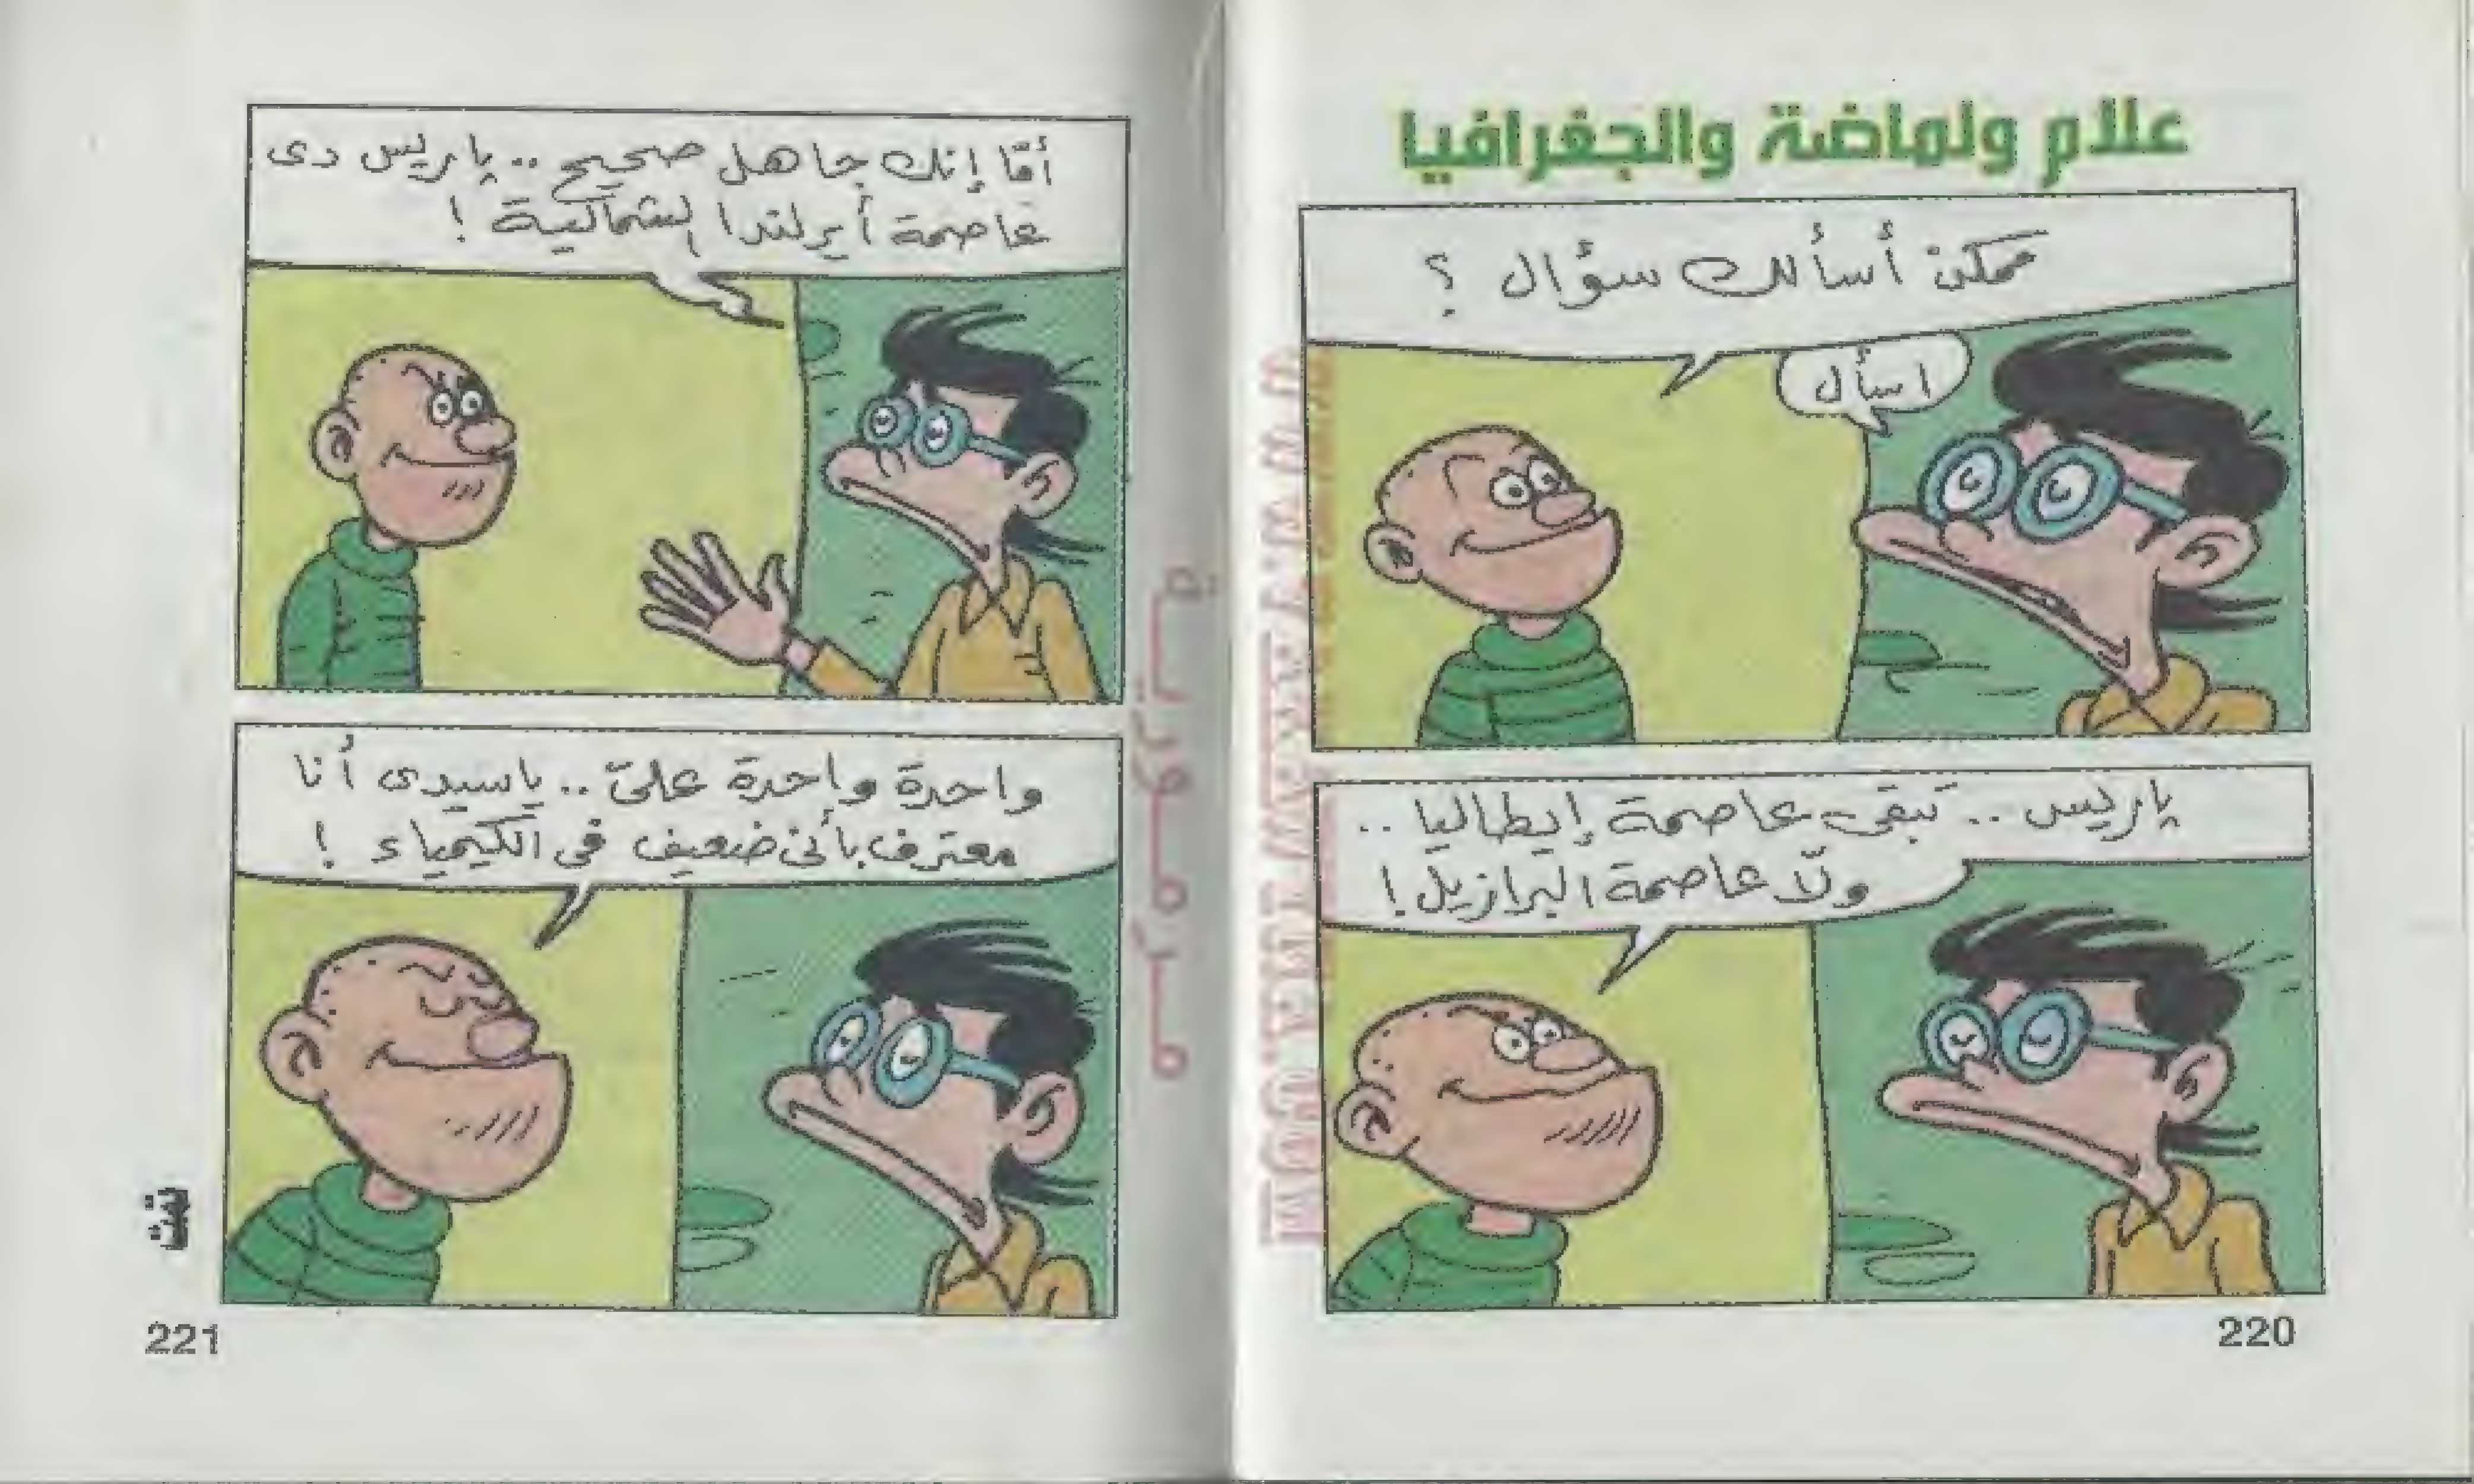 علام ولماضة والجغرافيا
ممكن أسألك سؤال ؟
اسأل
باريس .. تبقى عاصمة إيطاليا ..
ولّا عاصمة البرازيل !
220
أمّا إنك جاهل صحيح .. باريس دى
عاصمة أيرلندا الشمالية !
واحدة واحدة علىّ .. ياسيدى أنا
معترف بأنى ضعيف فى الكيمياء !
تمت
221